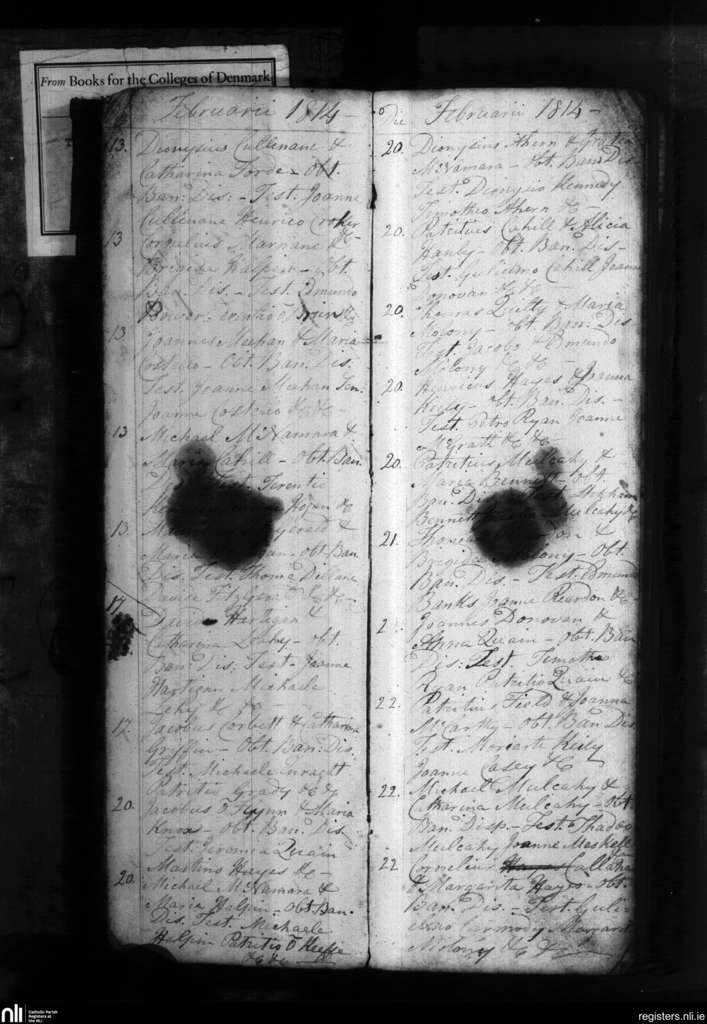 From Books for the Colleges of Denmark
Februarii 1814 -
13. Dionysius Cullenane &
Catharina Forde - Obt.
Ban: Dis: - Test. Joanne
Cullenane Henrico Croker
13 Cornelius Marnane &
Brigida Halpin - Obt.
Ban. Dis. - Test. Edmundo
O Brien &c
13. Joannes Meehan & Maria
Costelo - Obt. Ban. Dis.
Test. Joanne Meehan Sen.
Joanne Costelo &c &c -
13 Michael McNamara &
Maria Cahill - Obt. Ban
Test. Terentio
Hogan &c
13. &
Maria - Obt. Ban
Dis. Test. Thoma Dillane
Davide Fitzgerald &c -
17 David Hartigan &
Catharina Leahy - Obt.
Ban: Dis. Test. Joanne
Hartigan Michaele
Lehy & &c -
17 Jacobus Corbett & Catharina
Griffin - Obt. Ban: Dis.
Test. Michaele Enraght
Patritio Grady &c &c
20. Jacobus O Flynn & Maria
Knox - Obt. Ban. Dis
Test. Quain
Martino Hayes &c -
20. Michael McNamara &
Maria Halpin - Obt Ban.
Dis. Test Michaele
Halpin Patritio O Keeffe
&c &c
Die Februarii 1814 -
20. Dionysius Ahern &
McNamara - Obt. Ban: Dis
Test Dionysio Kennedy
Timotheo Ahern &c -
20. Patritius Cahill & Alicia
Hanly - Obt. Ban. Dis -
Test. Gulielmo Cahill Joanne
Donovan &c &c -
20. Thomas Quilty & Maria
Molony - Obt Ban: Dis
Test Jacobo & Edmundo
Molony &c &c -
20. Henricus Hayes & Joanna
Kiely - Obt. Ban. Dis. -
Test. Petro Ryan Joanne
McGrath &c &c -
20. Patritius Mulcahy &
Maria Bennett - Obt
Ban: Dis Test Stephano
Bennett Mulcahy &c
21. Thomas &
Brigida Molony - Obt.
Ban. Dis - Test. Edmundo
Banks Joanne Reardon &c
2 Joannes Donovan &
Anna Quain - Obt. Ban
Dis: Test. Timotheo
Ryan Patritio Quain &c
22. Patritius Field & Joanna
McCarthy - Obt Ban Dis
Test. Moriarte Kiely
Joanne Casey &c
22. Michael Mulcahy &
Catharina Mulcahy - Obt.
Ban. Disp. - Test. Thadeo
Mulcahy Joanne Meskell
22 Cornelius Callahan
& Margarita Hayes - Obt.
Ban. Dis. - Test. Guli
elmo Carmody Margarit
Molony &c &c
nli Catholic Parish
Registers at
the NLI
registers.nli.ie